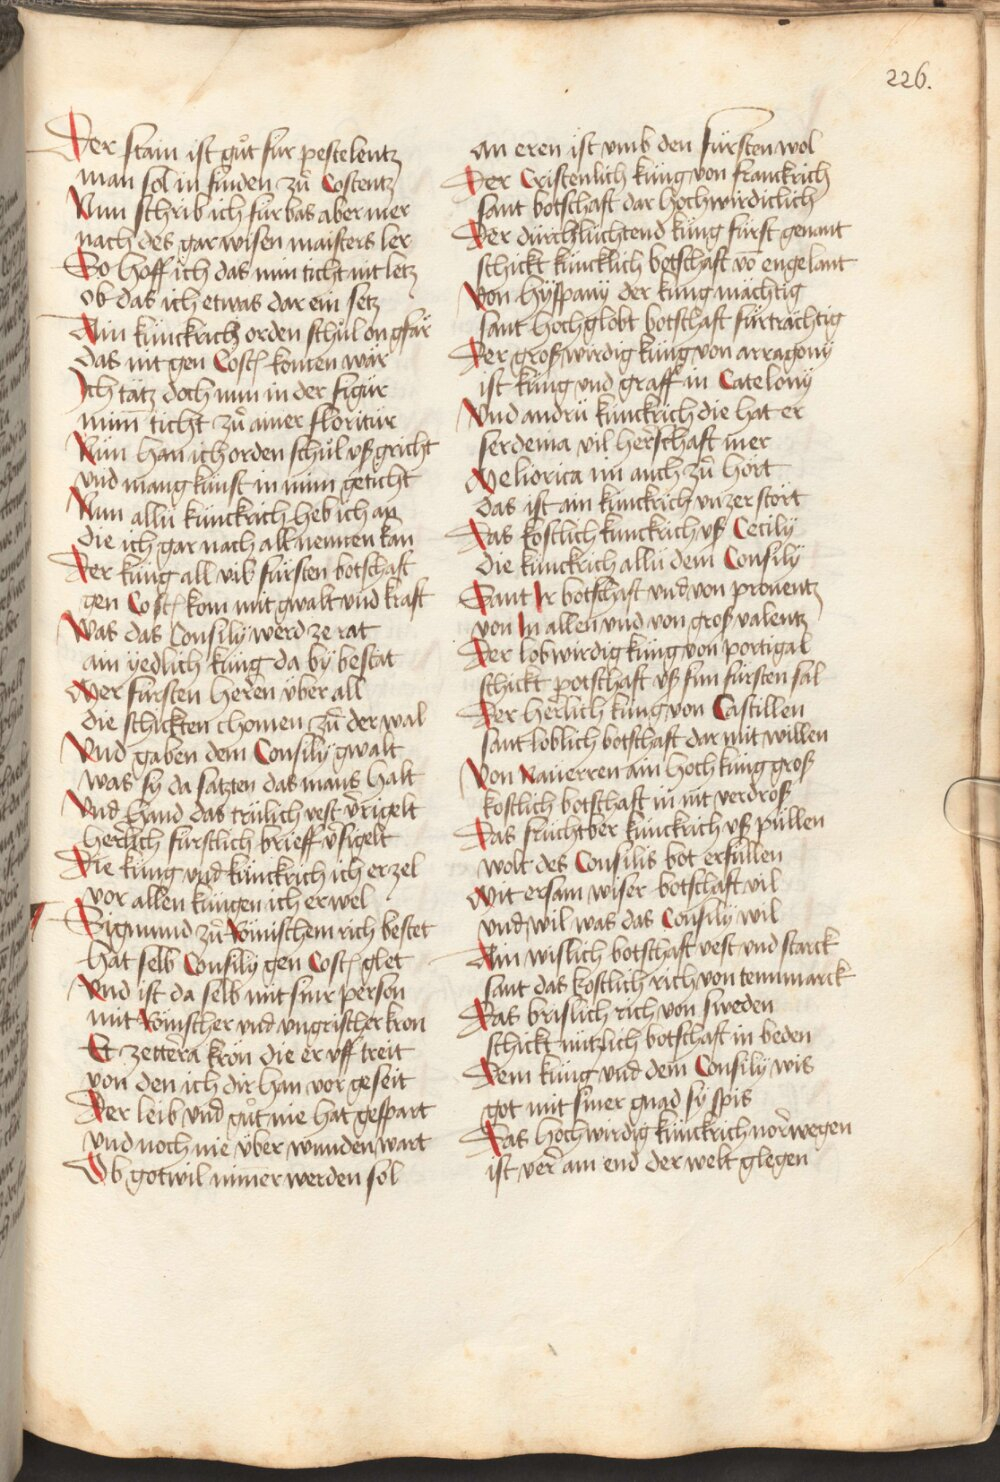 226.
Der stain ist gůt für pestelentz
man sol in finden zů Costentz
Nun schrib ich für bas aber mer
nach des gar wisen maisters ler
So hoff ich das min ticht nit letz
ob das ich etwas dar ein setz
Ain künckrich orden schůl on gfär
das nit gen Cost komen wär
Ich tätz doch nun in der figur
minn ticht zů ainer floritur
Nun han ich orden schůl vß gricht
vnd mang kunst in minn geticht
Nun allü künckrich heb ich an
die ich gar nach all nemen kan
Der küng all vnb fürsten botschaft
gen Cost kom mit gwalt vnd kraft
Was das Consily werd ze rat
ain yedlich küng da by bestat
Mer fürsten heren über all
die schickten chomen zů der wal
Vnd gaben dem Consily gwalt
was sy da satzten das mans halt
Vnd hand das trülich vest vrigelt
herlich fürstlich brieff vsigelt
Die küng vnd künckrich ich erzel
vor allen küngen ich erwel
Sigmund zů Römischem rich bestet
hat selb Consily gen Cost glet
Vnd ist da selb mit sinr person
mit Römscher vnd vngrischer kron
Et zettera kron die er vff treit
von den ich dir han vor geseit
Der leib vnd gůt nie hat gespart
vnd noch nie über wunden wart
Ob got wil nimer werden sol
an eren ist vmb den fürsten wol
Der Cristenlich küng von franckrich
sant botschaft dar hochwirdiclich
Der durchlüchtend küng fürst genant
schickt küncklich betschaft vo engelant
Von hyspany der küng mächtig
sant hochglobt botschaft fürträchtig
Der groswirdig küng von arragony
ist küng vnd graff in Catelony
Vnd andrü künckrich die hat er
serdenia vil herschaft mer
Meliorica im auch zů hört
das ist ain künckrich vnzerstört
Das kostlich künckrich vß Cecily
die künckrich allü dem Consily
Sant Ir botschaft vnd von prouentz
von In allen vnd von gros valentz
Der lobwirdig küng von portigal
schickt potschaft vß sim fürsten sal
Der herlich küng von Castillen
sant loblich botschaft dar mit willen
Von Nauerren ain hoch küng groß
kostlich botschaft in nit verdroß
Das fruchtber künckrich vß püllen
wolt des Consilis bot erfüllen
Mit ersam wiser botschaft vil
vnd wil was das Consily wil
Ain wislich botschaft vest vnd starck
sant das kostlich rich von tennmarck
Das brislich rich von sweden
schickt nützlich botschaft in beden
Dem küng vnd dem Consily wis
got mit siner gnad sy spis
Das hochwirdig künckrich norwegen
ist ver am end der welt glegen